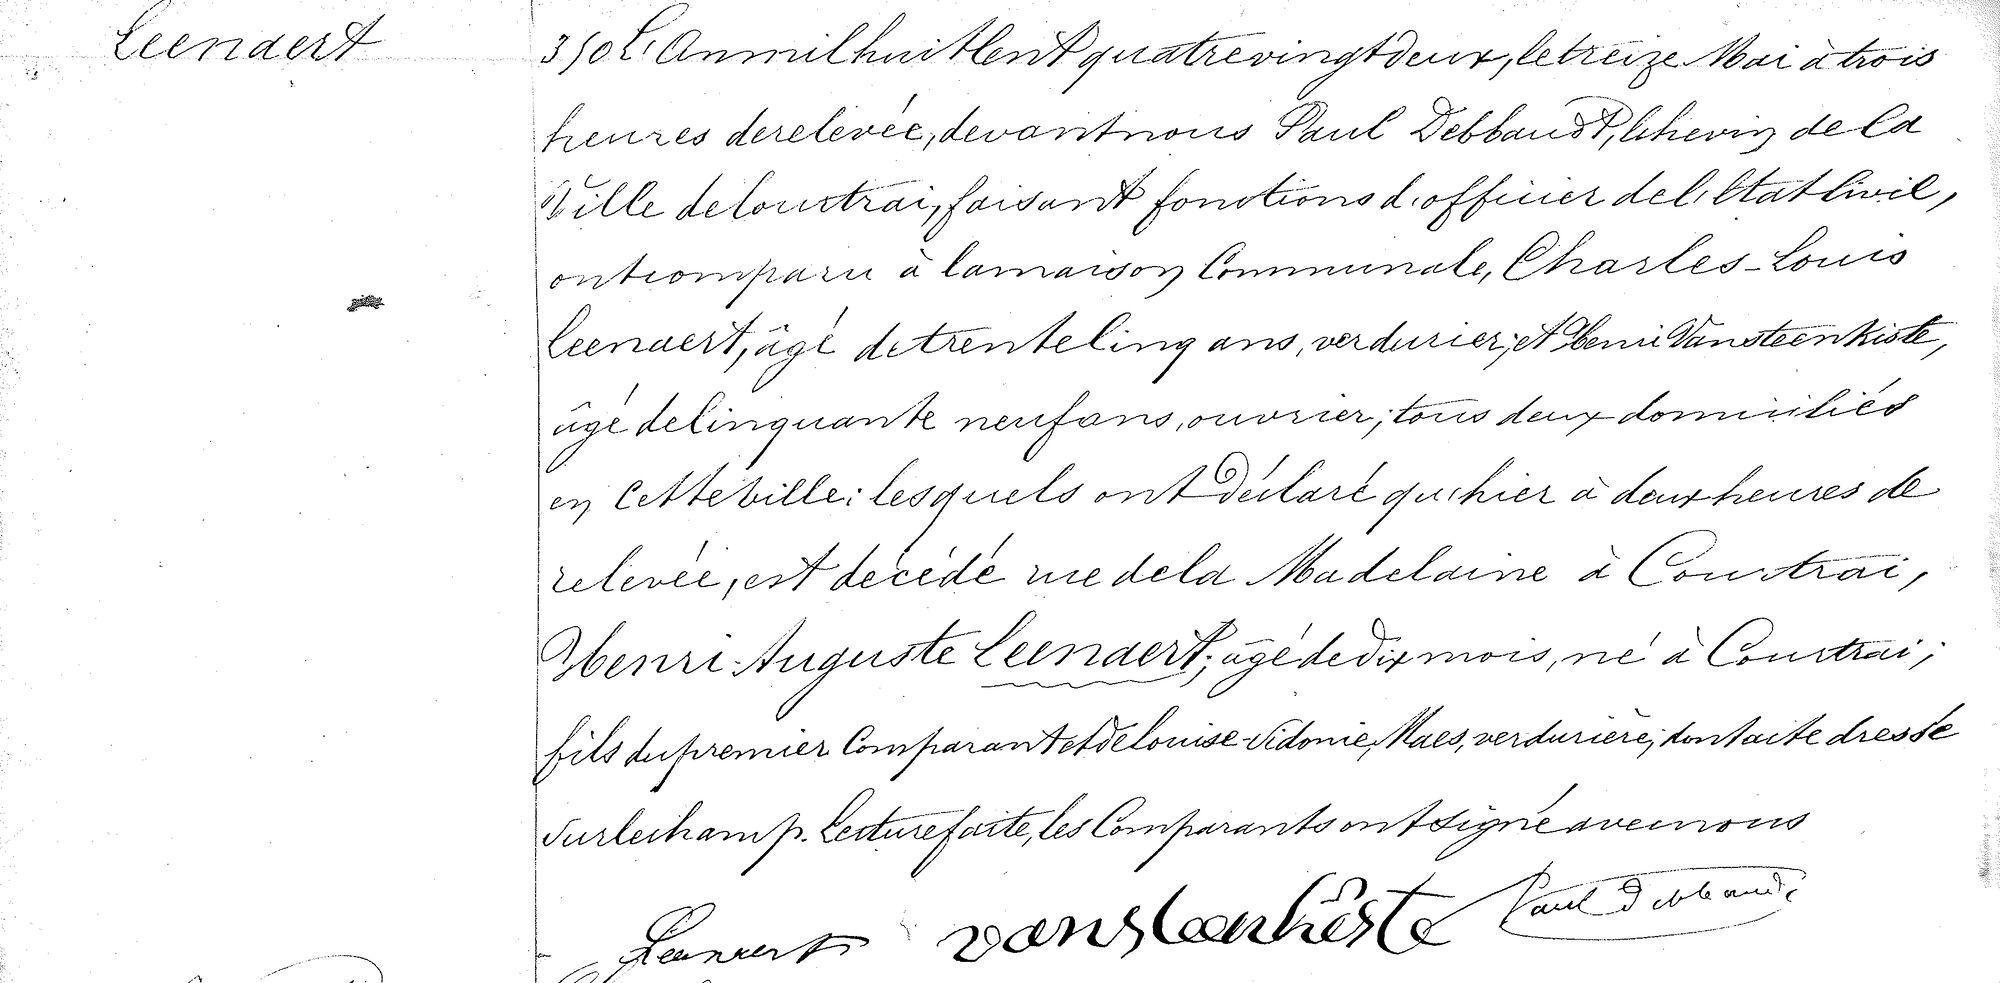 Leenaert
350 L'An mil huit Cent quatre vingt deux, le treize Mai à trois
heures de relevée, devant nous Paul Debbaudt, Echevin de la
Ville de Courtrai, faisant fonctions d'officier de l'Etat Civil,
ont comparu à la maison Communale, Charles-Louis
Leenaert, âgé de trente Cinq ans, verdurier; et Henri Vansteenkiste,
âgé de Cinquante neuf ans, ouvrier; tous deux domiciliés
en Cette ville: lesquels ont déclaré qu'hier à deux heures de
relevée, est décédé rue de la Madelaine à Courtrai,
Henri-Auguste Leenaert, âgé de dix mois, né à Courtrai;
fils du premier Comparant et de Louise-Sidonie Maes, verdurière; dont acte dressé
sur le champ. Lecture faite, les Comparants ont signé avec nous
Leenaert vansteenkiste Paul Debbaudt